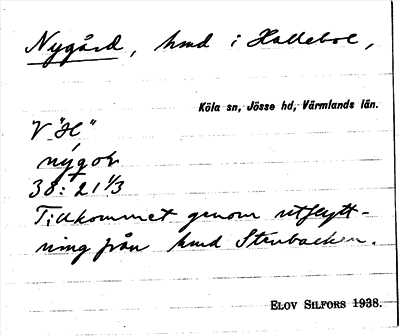 Nygård, hmd i Hallebol,
Köla sn, Jösse hd, Värmlands län.
V "H"
nýgoṛ
38: 21 1/3
Tillkommet genom utflytt-
ning från hmd Stenbacken.
ELOV SILFORS 1938.